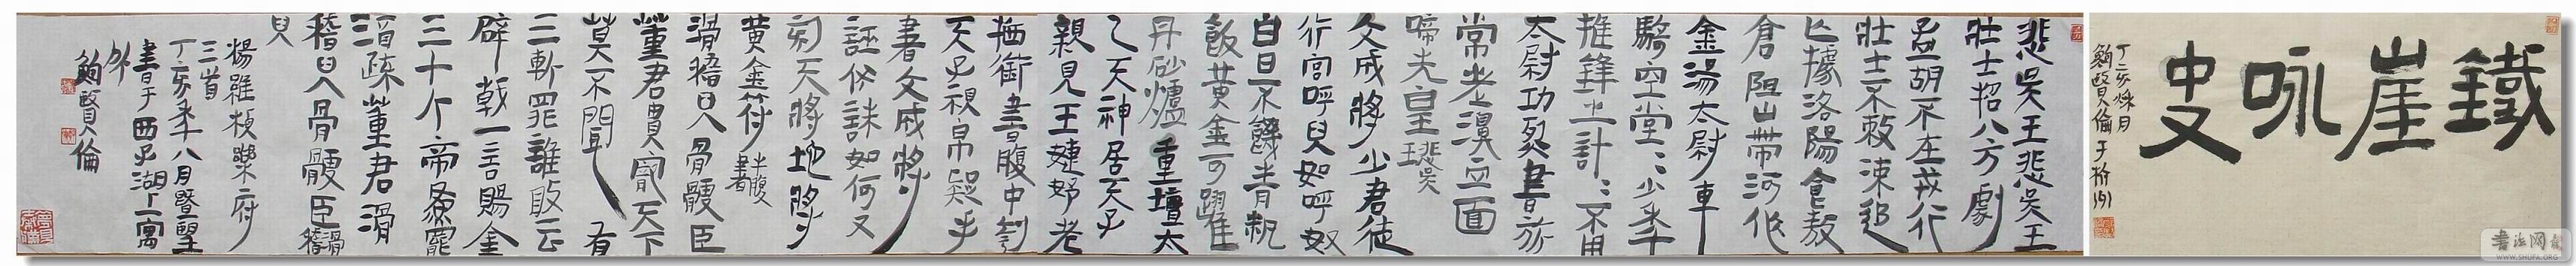 鐵崖咏史
丁亥秋月
鮑賢倫于杭州
悲吴王悲吴王
壯士招八方劇
孟胡不在戎行
壯士不救涑
據洛陽食敖
倉阻山帶河作
金湯太尉車
騎空堂〻少年
推鋒之計〻不用
太尉功烈書旂
常老濞亞面
啼夫皇 悲吴王
文成將少君徒
行宫呼兒如呼奴
白日不饑青
飯黄金可躍
丹砂爐重壇太
乙天神居天子
親見王婕妤老
牺銜書腹中刳
天子視帛疑手
書文成將
誣伏誅詔如何又
刻天將地將
黄金符 牛腹書
滑稽兒骨鯁臣
董君貴寵天下
莫不聞 有
三斬罪誰敢云
辟戟一言賜金
三十斤帝益寵
滑疏董君滑
稽兒骨鯁臣 滑稽
兒
楊維楨樂府
三首
丁亥年八月暨望
書于西子湖上寓
外
鮑賢倫
書法网
WWW.SHUFA.ORG